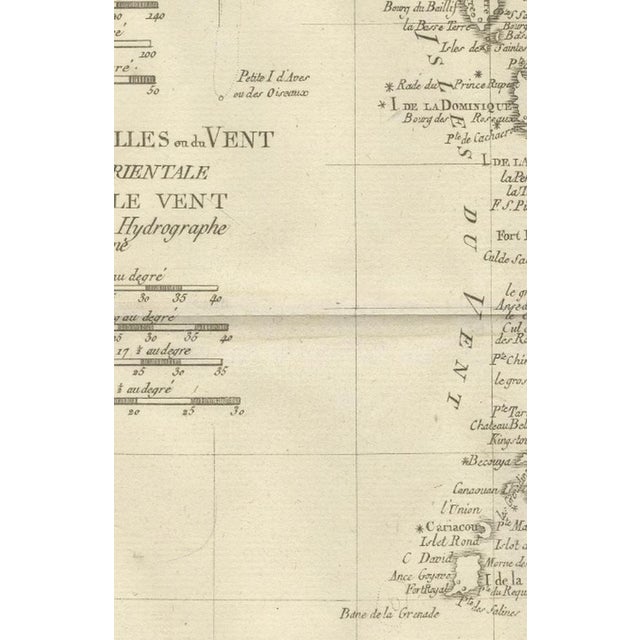 120 140
100
50
Petite I d'Aves
ou des Oiseaux
ILLES ou du VENT
RIENTALE
LE VENT
Hydrographe
au degré
30 35 40
au degré
25 30 35 40
17 ½ au degre
25 30 35
½ au degré
20 25 30
Bourg du Baillif
la Basse Terre
Isles de Saintes
Rade du Prince Rupe
* I DE LA DOMINIQUE
Bourg des Roseaux
Pte de Cachacr
ISLES DU VENT
I. DE LA
la Pe
la T
F. S. Pi
Fort
Cul de Sa
le gro
Anse a
Cul
des Ro
Pte Chi
le gros
Pte Tar
Chateau Bel
Kingsto
* Becouya
Canaouan
l'Union
* Cariacou
Pte Ma
Islet Rond
Islot d
C David
Morne de
Ance Goyave
I de la
Fort Royale
Pte du Requ
Pte des Salines
Banc de la Grenade